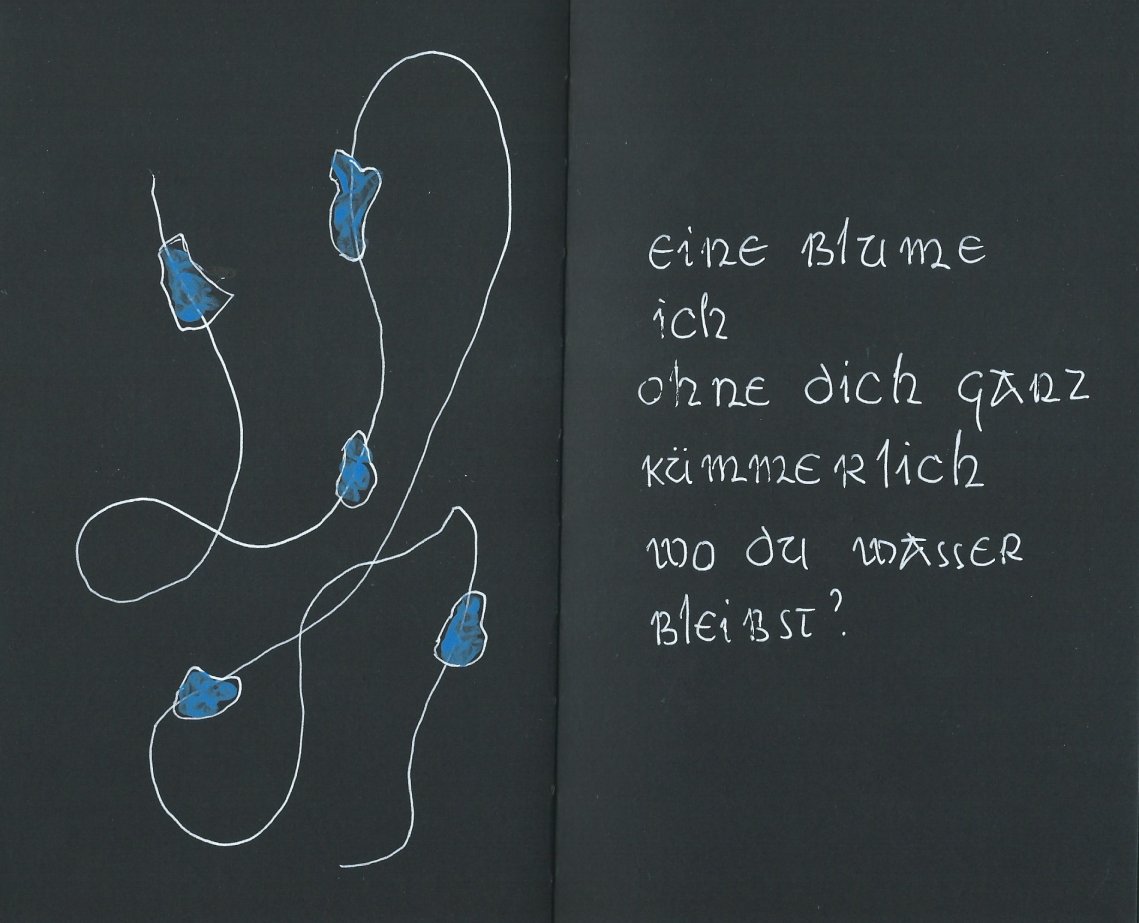 eine Blume
ich
ohne dich ganz
kümmerlich
wo du wasser
bleibst?